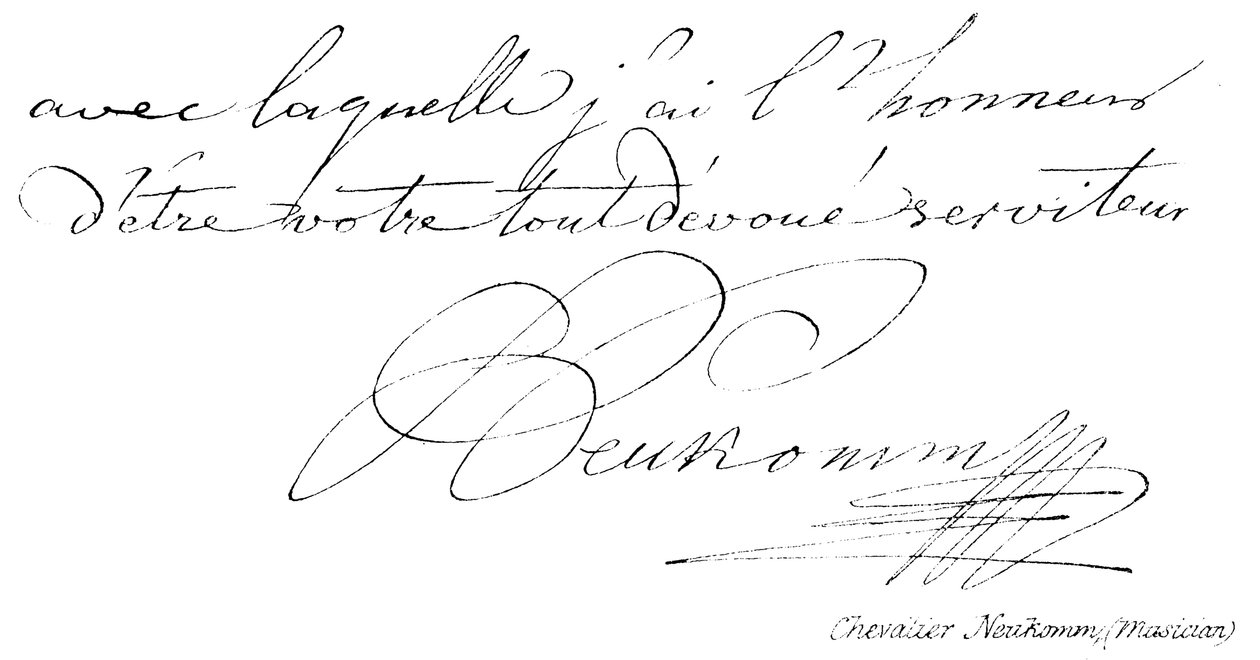 avec laquelle j'ai l'honneur
d'être votre tout dévoué serviteur
Neukomm
Chevalier Neukomm, (Musician)